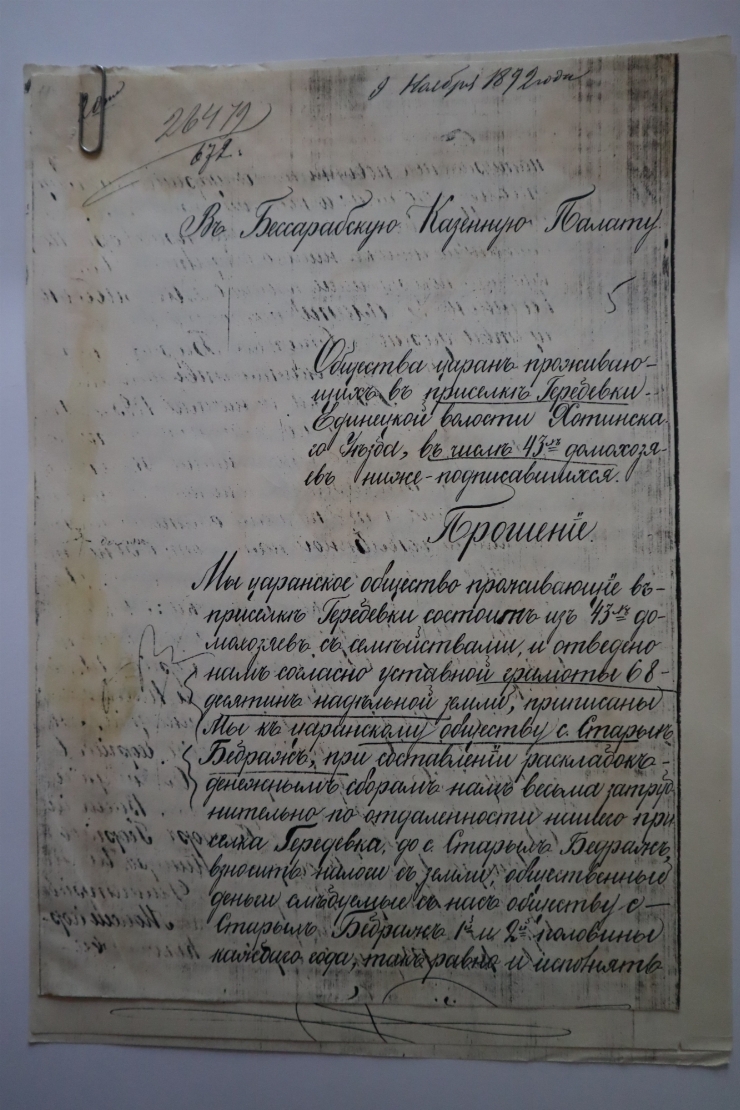 9 Ноября 1892 года
26472
672.
Въ Бессарабскую Казенную Палату
5
Общества царанъ проживаю-
щихъ въ приселкѣ Геребевки.
Единецкой волости Хотинска
го Уѣзда, въ числѣ 43хъ домохозя-
евъ ниже-подписавшихся.
Прошеніе.
Мы царанское общество проживающіе въ-
приселкѣ Геребевки состоитъ изъ 43хъ до-
мохозяевъ съ семѣйствами, и отведено
намъ согласно уставной грамоты 68-
десятинъ надѣльной земли, приписаны
Мы къ царанскому обществу с. Старымъ
Бебражъ, при составленіи раскладокъ-
денежнымъ сборамъ намъ весьма затруд
нительно по отдаленности нашего при
селка Гередевка, до с. Старымъ Бедражъ,
вносить налоги съ земли, общественные
деньги слѣдуемые съ насъ обществу с-
Старымъ Бебражъ 1й и 2й половины
каждаго года, такъ равно и исполнять